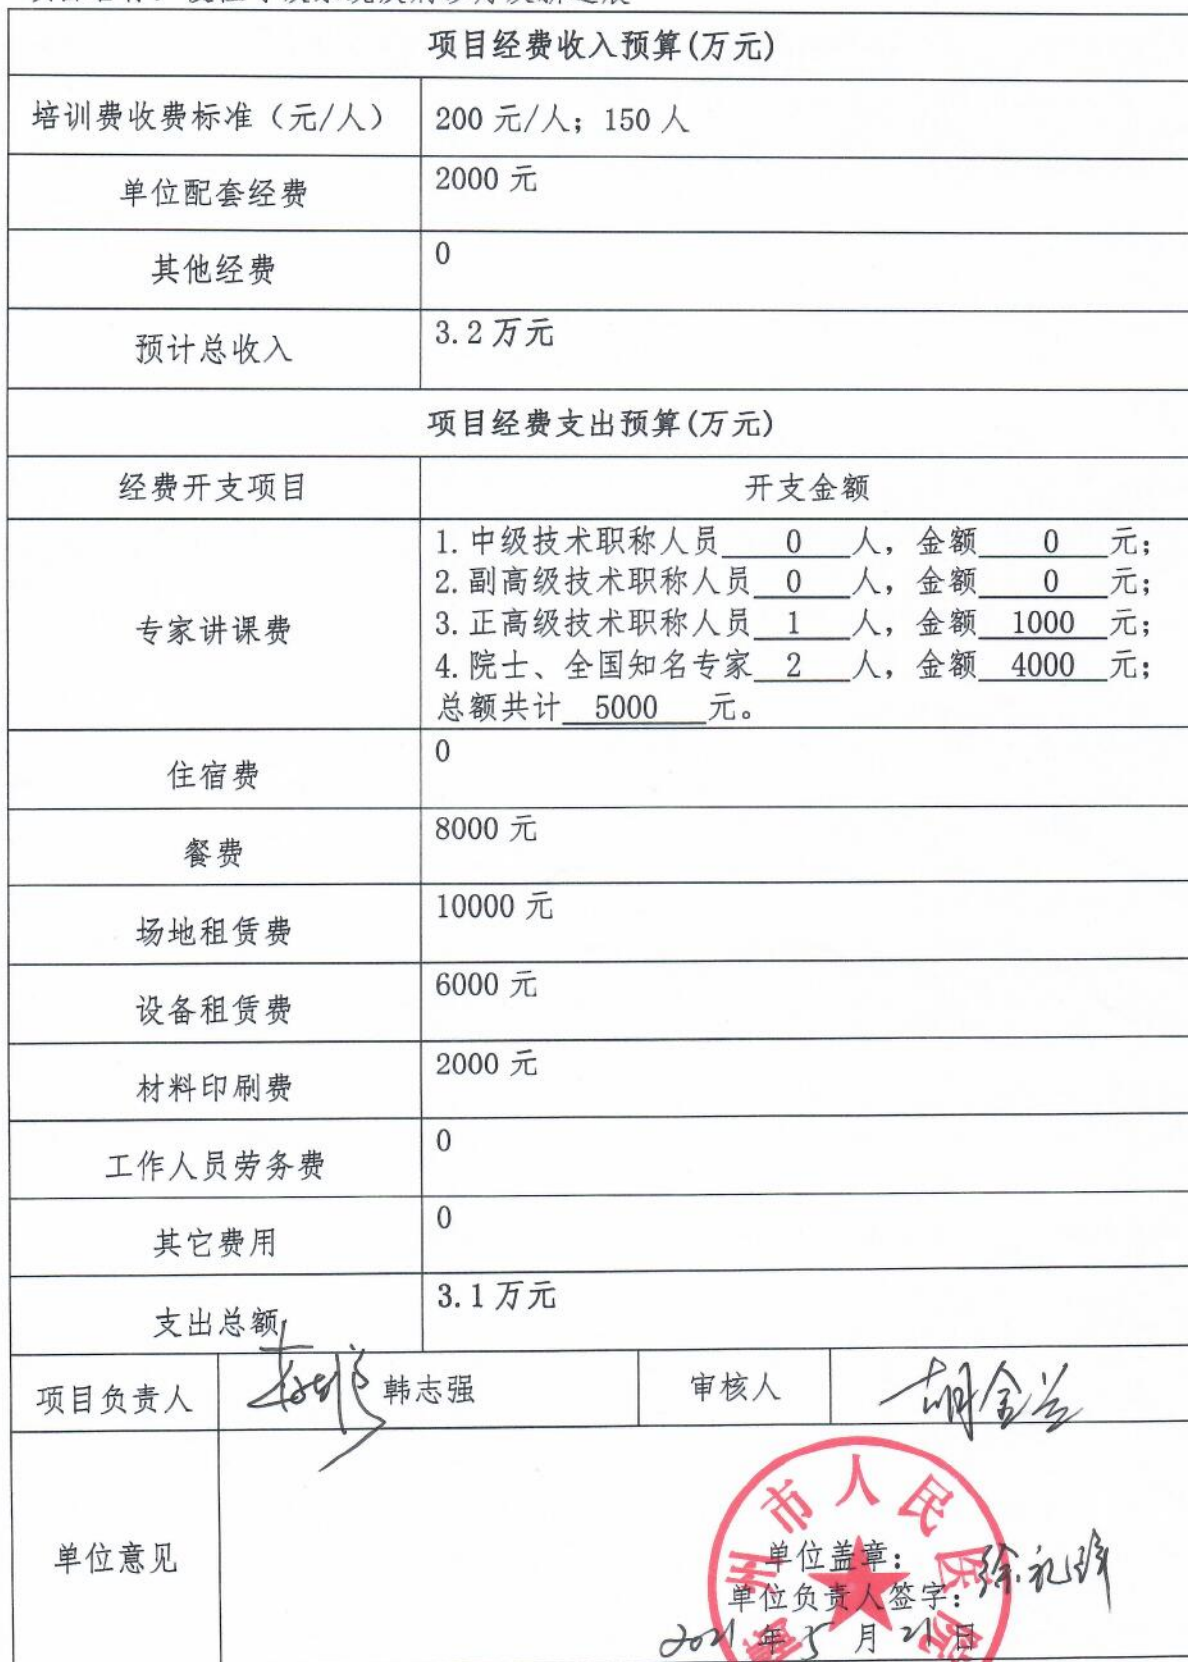 项目经费收入预算(万元)
培训费收费标准（元/人） 200 元/人；150 人
单位配套经费 2000 元
其他经费 0
预计总收入 3.2 万元
项目经费支出预算(万元)
经费开支项目 开支金额
专家讲课费
1.中级技术职称人员 0 人，金额 0 元；
2.副高级技术职称人员 0 人，金额 0 元；
3.正高级技术职称人员 1 人，金额 1000 元；
4.院士、全国知名专家 2 人，金额 4000 元；
总额共计 5000 元。
住宿费 0
餐费 8000 元
场地租赁费 10000 元
设备租赁费 6000 元
材料印刷费 2000 元
工作人员劳务费 0
其它费用 0
支出总额 3.1 万元
项目负责人 韩志强 审核人 胡金兰
单位意见
州市人民医院
单位盖章：
单位负责人签字：
2021 年 5 月 21 日